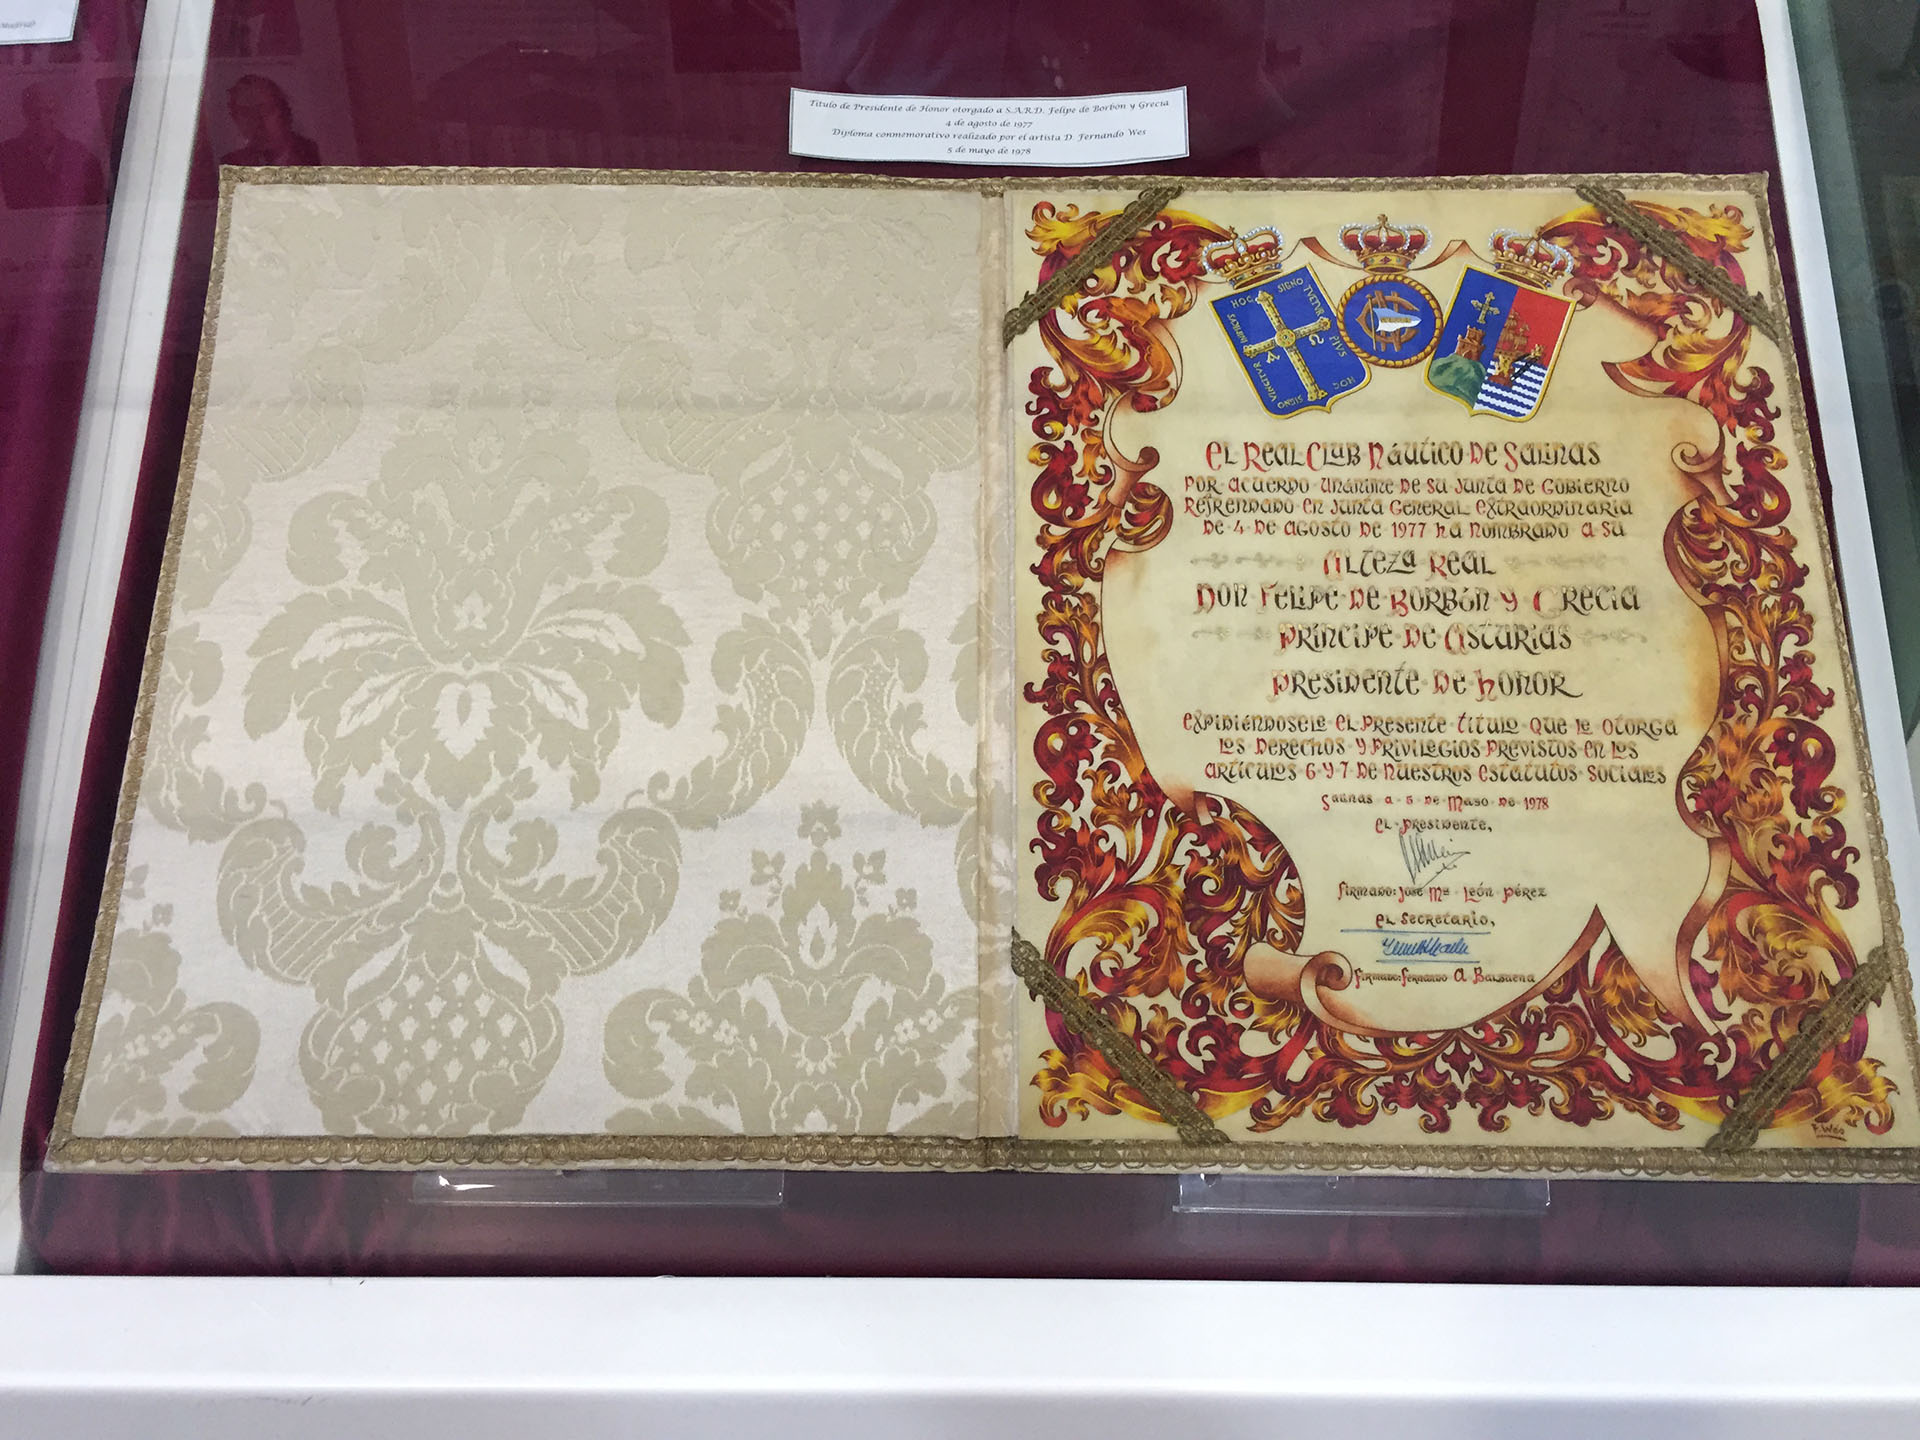 Título de Presidente de Honor otorgado a S.A.R.D. Felipe de Borbón y Grecia
4 de agosto de 1977
Diploma conmemorativo realizado por el artista D. Fernando Wes
5 de mayo de 1978
HOC SIGNO TVETVR PIVS
HOC SIGNO VINCITVR INIMICVS
El Real Club Náutico de Salinas
por acuerdo unánime de su Junta de Gobierno
Refrendado en Junta General Extraordinaria
de 4 de agosto de 1977 ha nombrado a su
Alteza Real
Don Felipe de Borbón y Grecia
Príncipe de Asturias
Presidente de Honor
expidiéndosele el presente título que le otorga
los derechos y privilegios previstos en los
artículos 6 y 7 de nuestros estatutos sociales
Salinas a 5 de Mayo de 1978
el presidente,
firmado: José Mª León Pérez
el secretario,
firmado: Fernando A. Balbuena
F. Wes